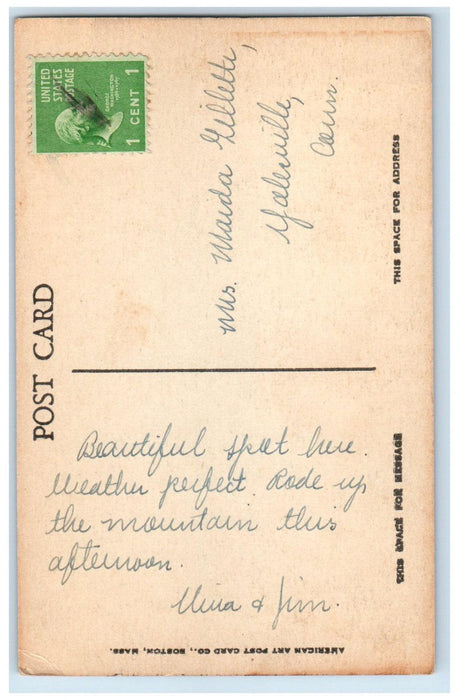 UNITED
STATES
POSTAGE
GEORGE
WASHINGTON
1789-1797
1 CENT 1
POST CARD
THIS SPACE FOR ADDRESS
Mrs. Maida Gillette,
Yalesville,
Conn.
THIS SPACE FOR MESSAGE
Beautiful spot here.
Weather perfect. Rode up
the mountain this
afternoon.
Nina & Jim.
AMERICAN ART POST CARD CO., BOSTON, MASS.